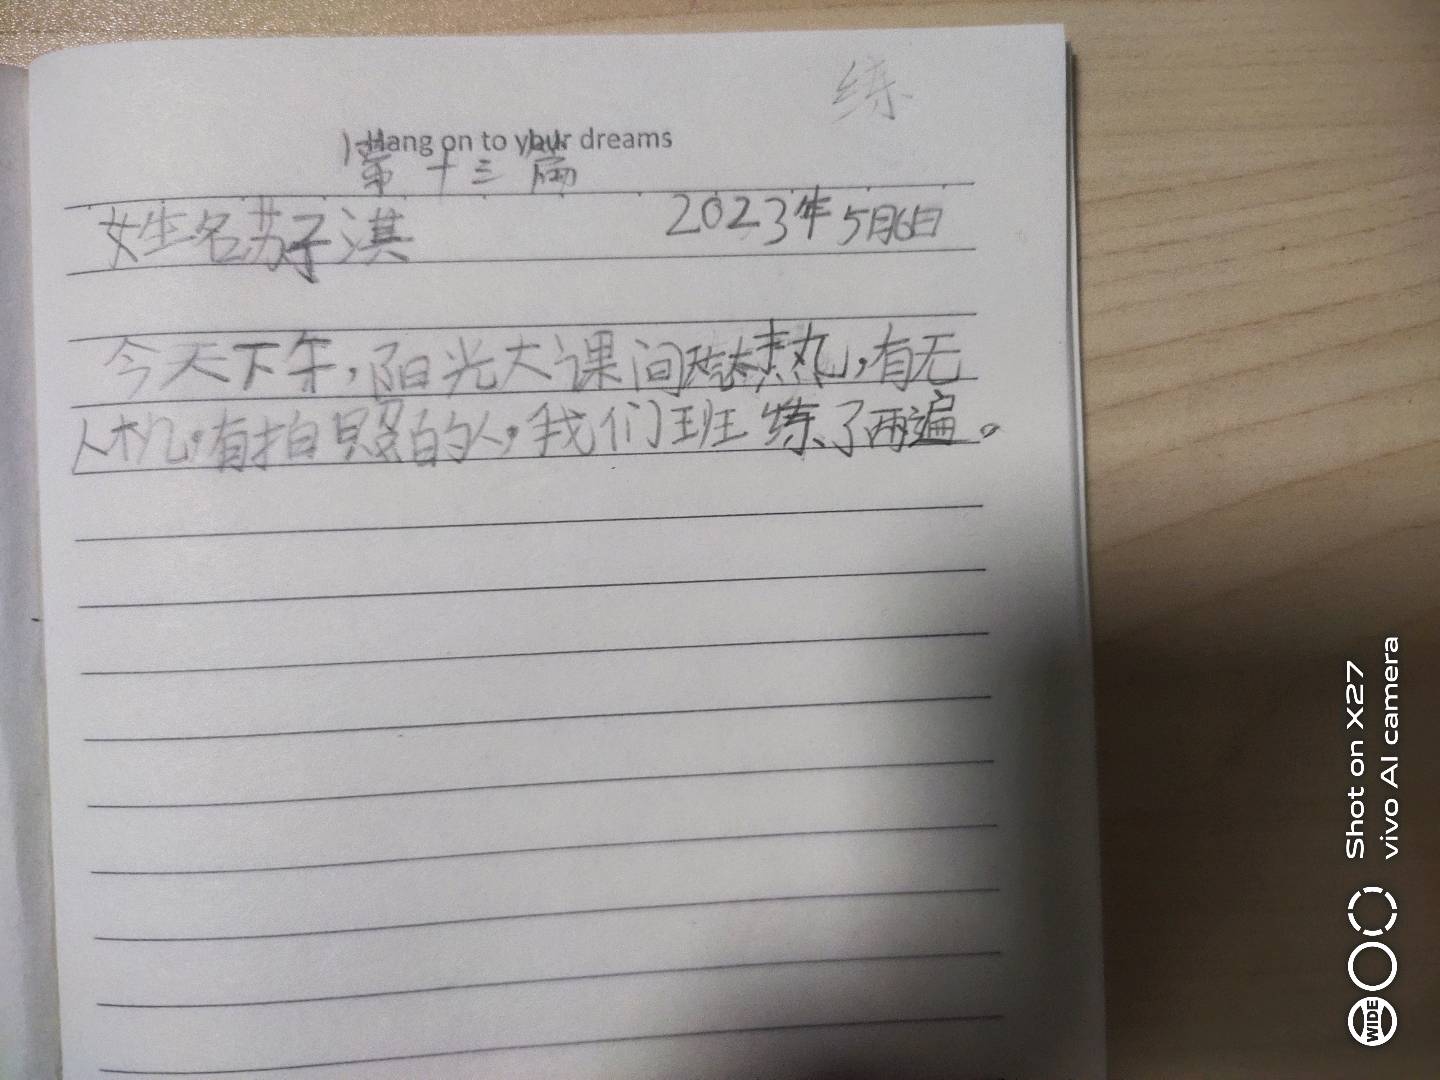 练
Hang on to your dreams
第十三篇
姓名苏子淇 2023年5月6日
今天下午,阳光大课间太热,有无
人机,有拍照的人,我们班练了两遍。
Shot on X27
vivo AI camera
WIDE